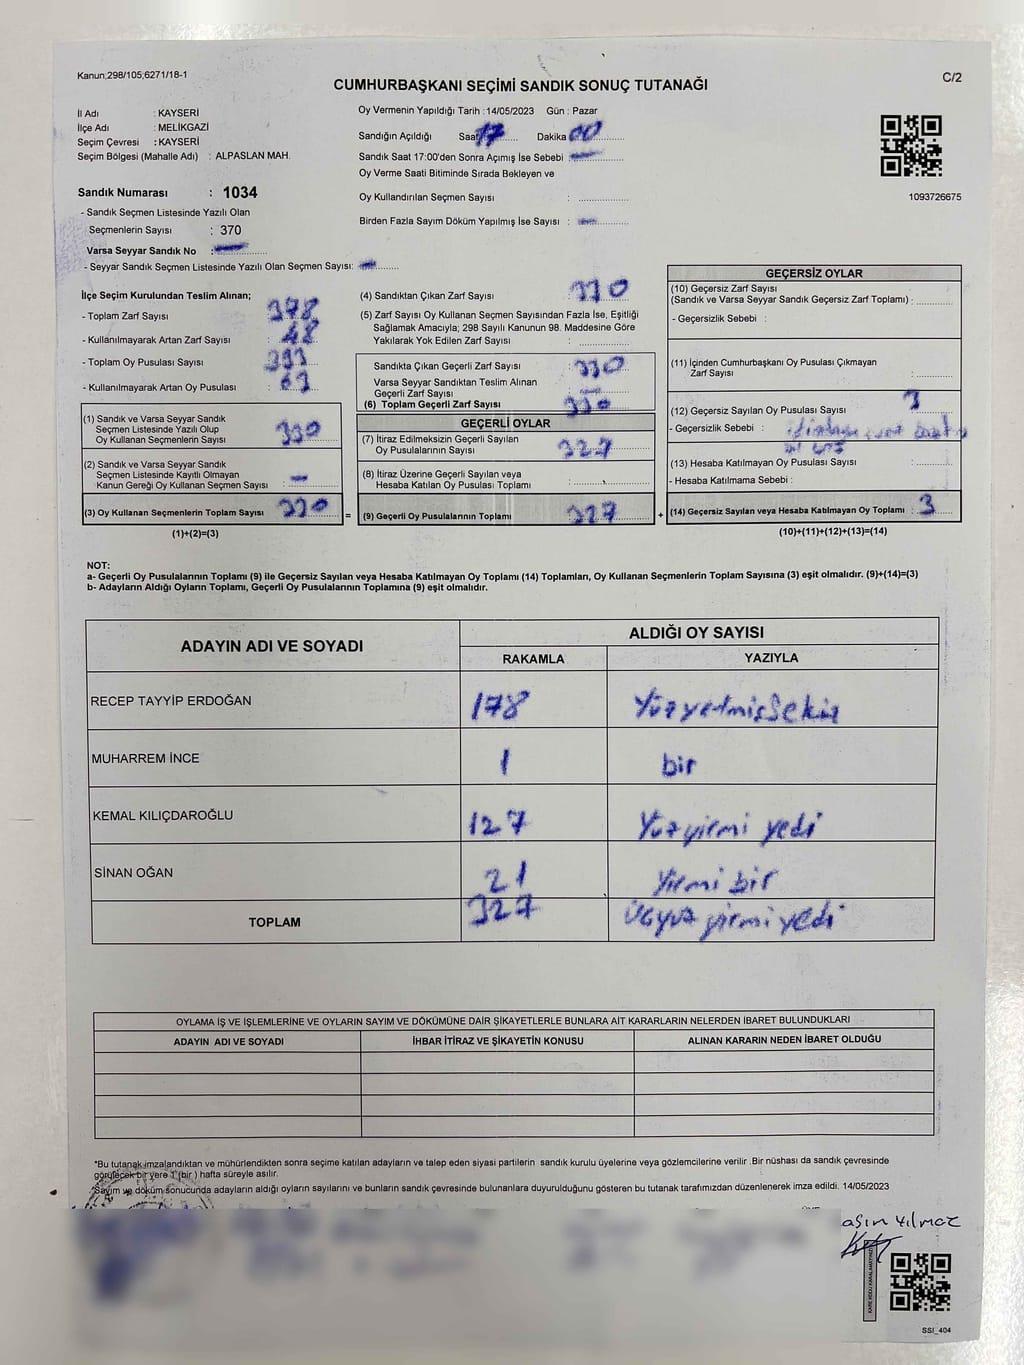 Kanun;298/105;6271/18-1
C/2
CUMHURBAŞKANI SEÇİMİ SANDIK SONUÇ TUTANAĞI
İl Adı : KAYSERİ
İlçe Adı : MELİKGAZİ
Seçim Çevresi : KAYSERİ
Seçim Bölgesi (Mahalle Adı) : ALPASLAN MAH.
Sandık Numarası : 1034
- Sandık Seçmen Listesinde Yazılı Olan
Seçmenlerin Sayısı : 370
Varsa Seyyar Sandık No :
- Seyyar Sandık Seçmen Listesinde Yazılı Olan Seçmen Sayısı:
Oy Vermenin Yapıldığı Tarih :14/05/2023 Gün : Pazar
Sandığın Açıldığı Saat 17 Dakika 00
Sandık Saat 17:00'den Sonra Açımış İse Sebebi :
Oy Verme Saati Bitiminde Sırada Bekleyen ve
Oy Kullandırılan Seçmen Sayısı :
Birden Fazla Sayım Döküm Yapılmış İse Sayısı :
1093726675
İlçe Seçim Kurulundan Teslim Alınan;
- Toplam Zarf Sayısı : 378
- Kullanılmayarak Artan Zarf Sayısı : 48
- Toplam Oy Pusulası Sayısı : 393
- Kullanılmayarak Artan Oy Pusulası : 63
(1) Sandık ve Varsa Seyyar Sandık
Seçmen Listesinde Yazılı Olup
Oy Kullanan Seçmenlerin Sayısı : 330
(2) Sandık ve Varsa Seyyar Sandık
Seçmen Listesinde Kayıtlı Olmayan
Kanun Gereği Oy Kullanan Seçmen Sayısı :
(3) Oy Kullanan Seçmenlerin Toplam Sayısı : 330
(1)+(2)=(3)
=
(4) Sandıktan Çıkan Zarf Sayısı : 330
(5) Zarf Sayısı Oy Kullanan Seçmen Sayısından Fazla İse, Eşitliği
Sağlamak Amacıyla; 298 Sayılı Kanunun 98. Maddesine Göre
Yakılarak Yok Edilen Zarf Sayısı :
Sandıkta Çıkan Geçerli Zarf Sayısı : 330
Varsa Seyyar Sandıktan Teslim Alınan
Geçerli Zarf Sayısı :
(6) Toplam Geçerli Zarf Sayısı : 330
GEÇERLİ OYLAR
(7) İtiraz Edilmeksizin Geçerli Sayılan
Oy Pusulalarının Sayısı : 327
(8) İtiraz Üzerine Geçerli Sayılan veya
Hesaba Katılan Oy Pusulası Toplamı :
(9) Geçerli Oy Pusulalarının Toplamı : 327
+
GEÇERSİZ OYLAR
(10) Geçersiz Zarf Sayısı
(Sandık ve Varsa Seyyar Sandık Geçersiz Zarf Toplamı) :
- Geçersizlik Sebebi :
(11) İçinden Cumhurbaşkanı Oy Pusulası Çıkmayan
Zarf Sayısı :
(12) Geçersiz Sayılan Oy Pusulası Sayısı : 3
- Geçersizlik Sebebi :
(13) Hesaba Katılmayan Oy Pusulası Sayısı :
- Hesaba Katılmama Sebebi :
(14) Geçersiz Sayılan veya Hesaba Katılmayan Oy Toplamı : 3
(10)+(11)+(12)+(13)=(14)
NOT:
a- Geçerli Oy Pusulalarının Toplamı (9) ile Geçersiz Sayılan veya Hesaba Katılmayan Oy Toplamı (14) Toplamları, Oy Kullanan Seçmenlerin Toplam Sayısına (3) eşit olmalıdır. (9)+(14)=(3)
b- Adayların Aldığı Oyların Toplamı, Geçerli Oy Pusulalarının Toplamına (9) eşit olmalıdır.
ADAYIN ADI VE SOYADI
ALDIĞI OY SAYISI
RAKAMLA YAZIYLA
RECEP TAYYİP ERDOĞAN 178 Yüzyetmişsekiz
MUHARREM İNCE 1 bir
KEMAL KILIÇDAROĞLU 127 Yüzyirmi yedi
SİNAN OĞAN 21 Yirmi bir
TOPLAM 327 Üçyüz yirmiyedi
OYLAMA İŞ VE İŞLEMLERİNE VE OYLARIN SAYIM VE DÖKÜMÜNE DAİR ŞİKAYETLERLE BUNLARA AİT KARARLARIN NELERDEN İBARET BULUNDUKLARI
ADAYIN ADI VE SOYADI İHBAR İTİRAZ VE ŞİKAYETİN KONUSU ALINAN KARARIN NEDEN İBARET OLDUĞU
*Bu tutanak imzalandıktan ve mühürlendikten sonra seçime katılan adayların ve talep eden siyasi partilerin sandık kurulu üyelerine veya gözlemcilerine verilir .Bir nüshası da sandık çevresinde
görülecek bir yere 1 (bir ) hafta süreyle asılır.
*Sayım ve döküm sonucunda adayların aldığı oyların sayılarını ve bunların sandık çevresinde bulunanlara duyurulduğunu gösteren bu tutanak tarafımızdan düzenlenerek imza edildi. 14/05/2023
asın Yılmaz
KARE KODU KARALAMAYINIZ
SSI_404